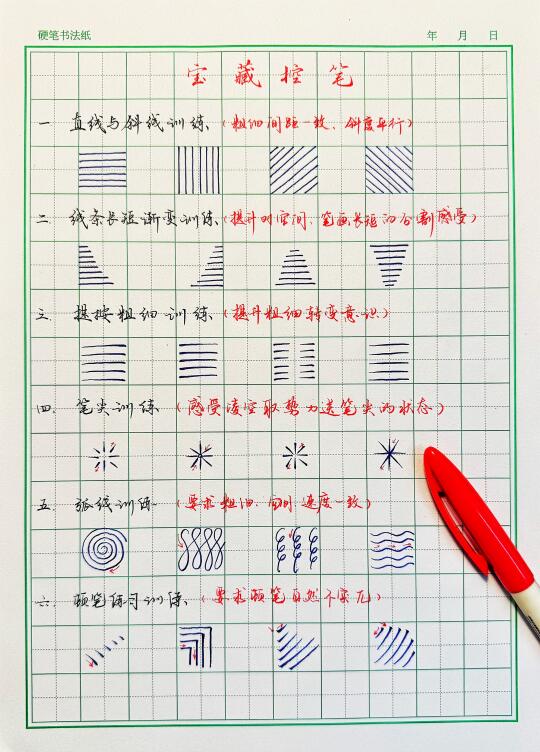 硬笔书法纸 年 月 日
宝藏控笔
一 直线与斜线训练(粗细间距一致、斜度平行)
二 线条长短渐变训练(提升对空间、笔画长短的分割感受)
三 提按粗细训练(提升粗细转变意识)
四.笔尖训练(感受凌空取势力送笔尖的状态)
五.弧线训练(要求粗细.匀时速度一致)
六.顿笔练习训练(要求顿笔自然不突兀)